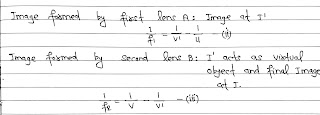 Image formed by first lens A: Image at I'
1/f₁ = 1/v' - 1/u - (i)
Image formed by second lens B: I' acts as virtual
object and final Image
at I.
1/f₂ = 1/v - 1/v' - (ii)